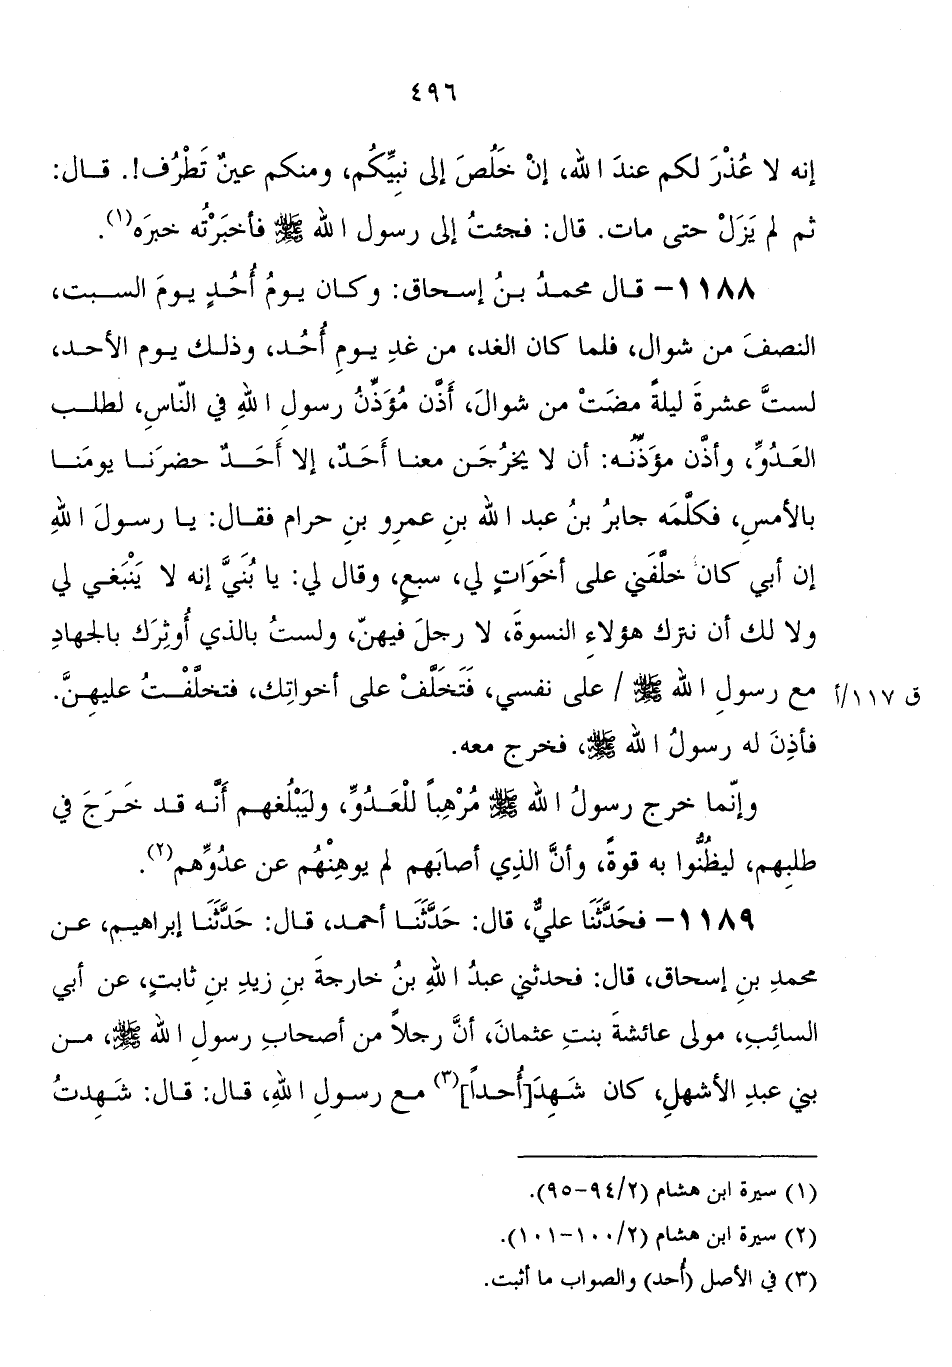 ٤٩٦
إنه لا عُذْرَ لكم عندَ الله، إنْ خَلُصَ إلى نبيِّكُم، ومنكم عينٌ تَطْرُف!. قـال:
ثم لم يَزَلْ حتى مات. قال: فجئتُ إلى رسول الله ﷺ فأخبَرْتُه خبرَه(١).
١١٨٨- قـال محمـدُ بـنُ إسـحاق: وكـان يـومُ أُحُـدٍ يـومَ السـبت،
النصفَ من شوال، فلما كان الغد، من غدِ يـومِ أُحُـد، وذلـك يـوم الأحـد،
لستَّ عشرةَ ليلةً مضَتْ من شوالَ، أَذَّن مُؤَذِّنُ رسولِ اللهِ في النّاسِ، لطلـب
العَـدُوِّ، وأذَّن مؤذّنـه: أن لا يخرُجَـن معنـا أَحَـدٌ، إلا أَحَـدٌ حضرَنـا يومَنـا
بالأمسِ، فكلَّمَه جابرُ بنُ عبد الله بنِ عمرِو بنِ حرام فقـال: يـا رسـولَ اللهِ
إن أبي كان خلَّفَني على أخوَاتٍ لي، سبعٍ، وقال لي: يا بُنَيَّ إنه لا يَنْبَغـي لي
ولا لك أن نترك هؤلاءِ النسوةَ، لا رجلَ فيهنّ، ولستُ بالذي أُوثِرَك بالجهادِ
مع رسولِ الله ﷺ / على نفسي، فَتَخَلَّفْ على أخواتِك، فتخلَّفْـتُ عليهـنَّ.
ق ١١٧/أ
فأذِنَ له رسولُ الله ﷺ، فخرج معه.
وإنّما خرج رسولُ الله ﷺ مُرْهِباً للْعَـدُوِّ، وليَبْلُغهـم أَنَّـه قـد خَـرَجَ في
طلبِهم، ليظُنُّوا به قوةً، وأنَّ الذي أصابَهم لم يوهِنْهُم عن عدُوِّهم(٢).
١١٨٩- فحَدَّثَنَا عليٌّ، قال: حَدَّثَنَـا أحمـد، قـال: حَدَّثَنَـا إبراهيـم، عـن
محمدِ بنِ إسحاق، قال: فحدثني عبدُ اللهِ بنُ خارجةَ بنِ زيدِ بنِ ثابتٍ، عن أبي
السائِبِ، مولى عائشةَ بنتِ عثمانَ، أنَّ رجلاً من أصحابِ رسولِ الله ﷺ، مـن
بني عبدِ الأشهلِ، كان شَـهِدَ[أُحـداً](٣) مـع رسـولِ اللهِ، قـال: قـال: شَـهِدتُ
(١) سيرة ابن هشام (٩٤/٢-٩٥).
(٢) سيرة ابن هشام (١٠٠/٢-١٠١).
(٣) في الأصل (أُحد) والصواب ما أثبت.